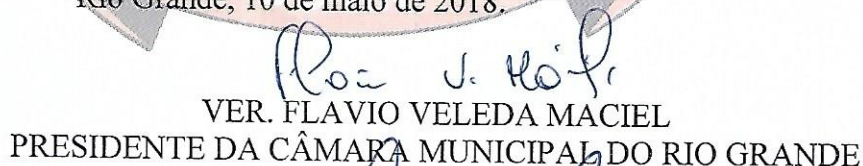 Rio Grande, 10 de maio de 2018.
VER. FLAVIO VELEDA MACIEL
PRESIDENTE DA CÂMARA MUNICIPAL DO RIO GRANDE